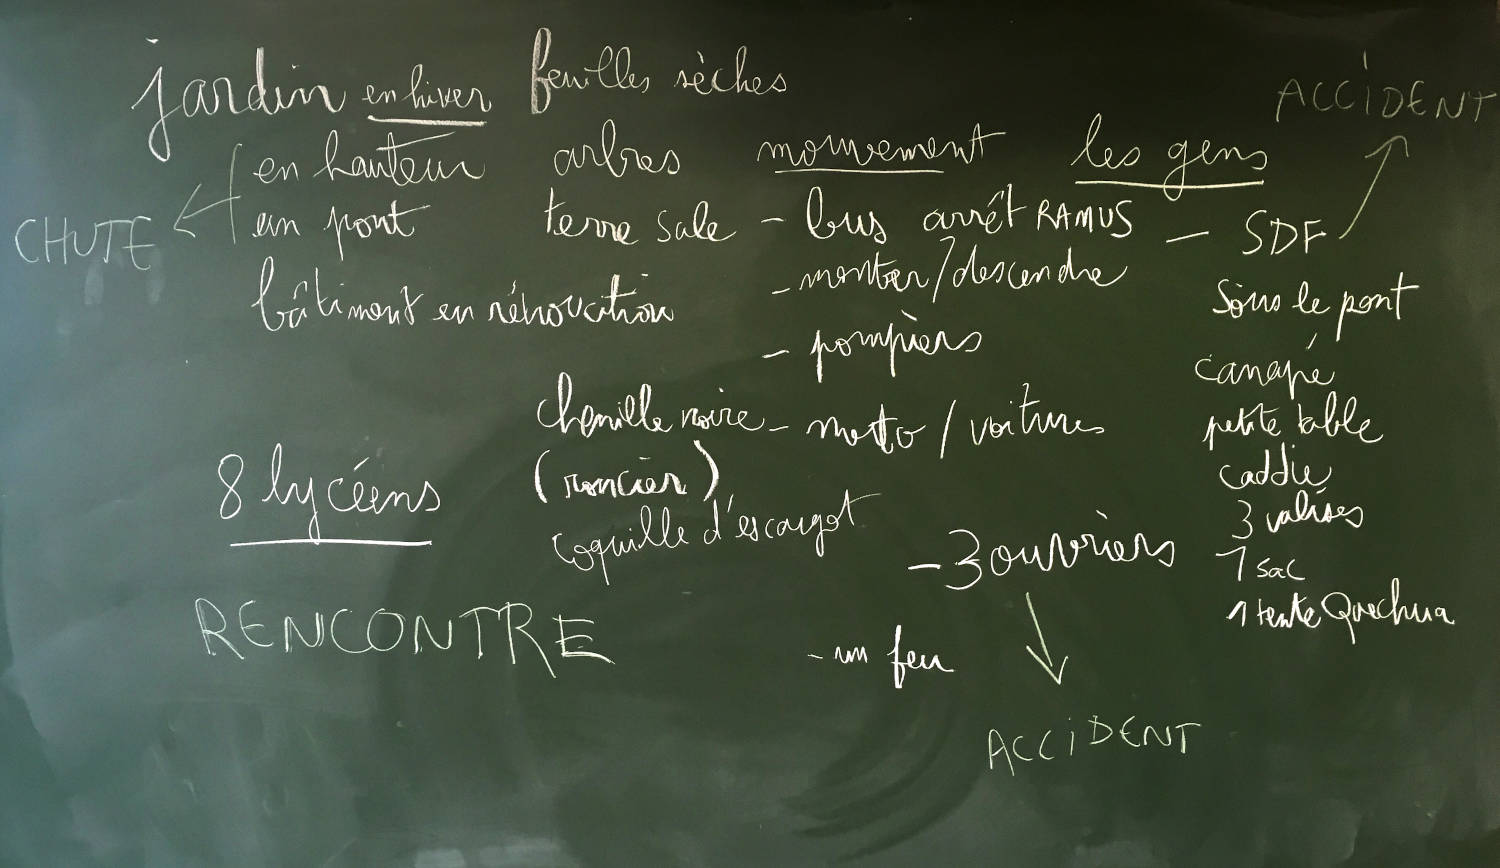 jardin en hiver feuilles sèches
en hauteur
un pont
CHUTE
bâtiment en rénovation
arbres
terre sale
chenille noire
(roncier)
coquille d'escargot
8 lycéens
RENCONTRE
mouvement
- bus arrêt RAMUS
- monter/descendre
- pompiers
- moto / voitures
- 3 ouvriers
ACCIDENT
- un feu
les gens
- SDF
ACCIDENT
sous le pont
canapé
petite table
caddie
3 valises
1 sac
1 tente Quechua